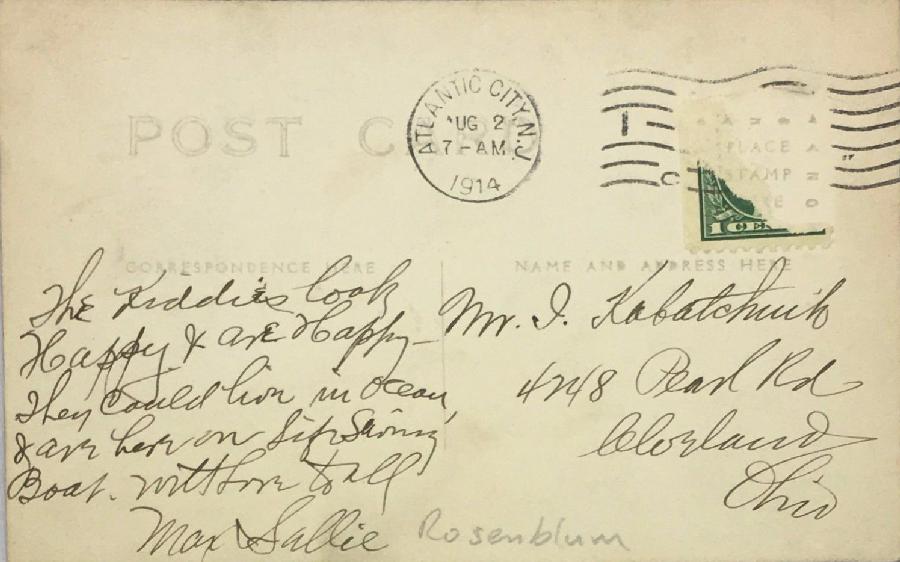 POST CARD
ATLANTIC CITY, N.J.
AUG 2
7-AM
1914
PLACE
STAMP
HERE
1 CE
CORRESPONDENCE HERE
NAME AND ADDRESS HERE
The Kiddies look
Happy & are Happy -
They could live in ocean,
& are here on Life Saving
Boat. With Love to all
Max Sallie
Rosenblum
Mr. I. Kabatchnik
4248 Pearl Rd
Cleveland
Ohio